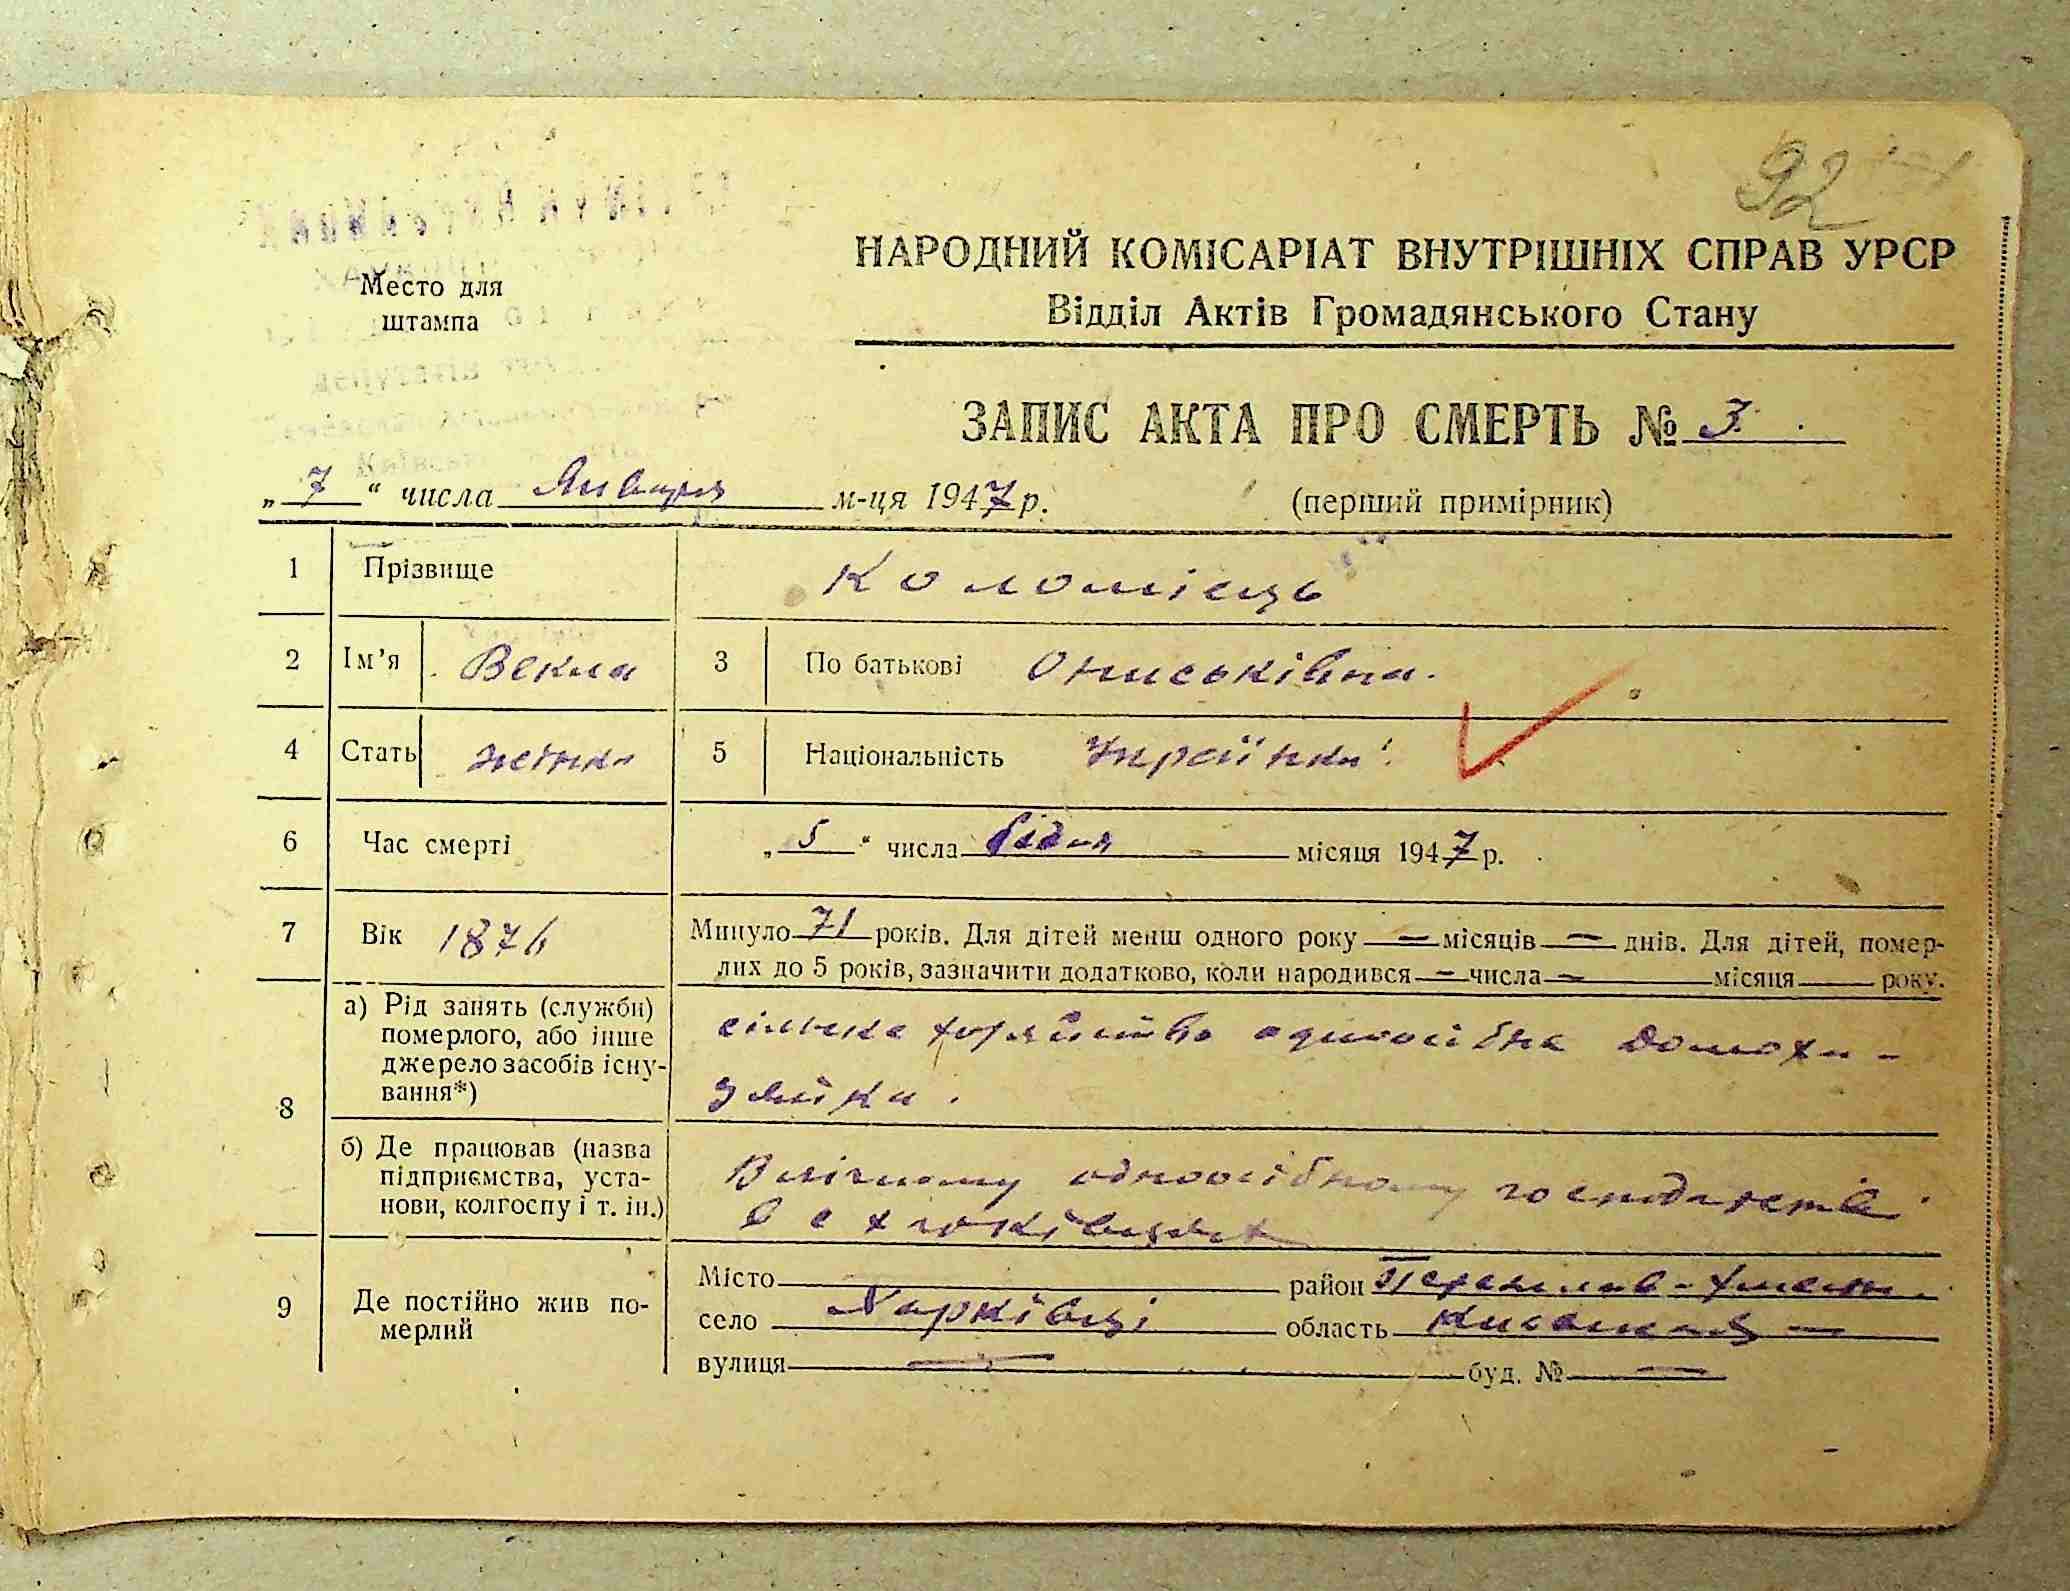 92
НАРОДНИЙ КОМІСАРІАТ ВНУТРІШНІХ СПРАВ УРСР
Відділ Актів Громадянського Стану
Место для
штампа
ЗАПИС АКТА ПРО СМЕРТЬ № 3
„ 7 “ числа Января м-ця 1947 р. (перший примірник)
1 Прізвище Коломієць
2 Ім’я Векла 3 По батькові Ониськівна.
4 Стать жінка 5 Національність Українка
6 Час смерті „ 5 “ числа січня місяця 1947 р.
7 Вік 1876 Минуло 71 років. Для дітей менш одного року — місяців — днів. Для дітей, помер-
лих до 5 років, зазначити додатково, коли народився — числа — місяця року.
8 а) Рід занять (служби)
померлого, або інше
джерело засобів існу-
вання*)
сільське одноосібне домоха-
зяйка.
б) Де працював (назва
підприємства, уста-
нови, колгоспу і т. ін.)
В одноосібному господарстві
в с Харківцях
9 Де постійно жив по-
мерлий
Місто район Переяслав-Хмельн.
село Харківці область Киевская —
вулиця — буд. № —